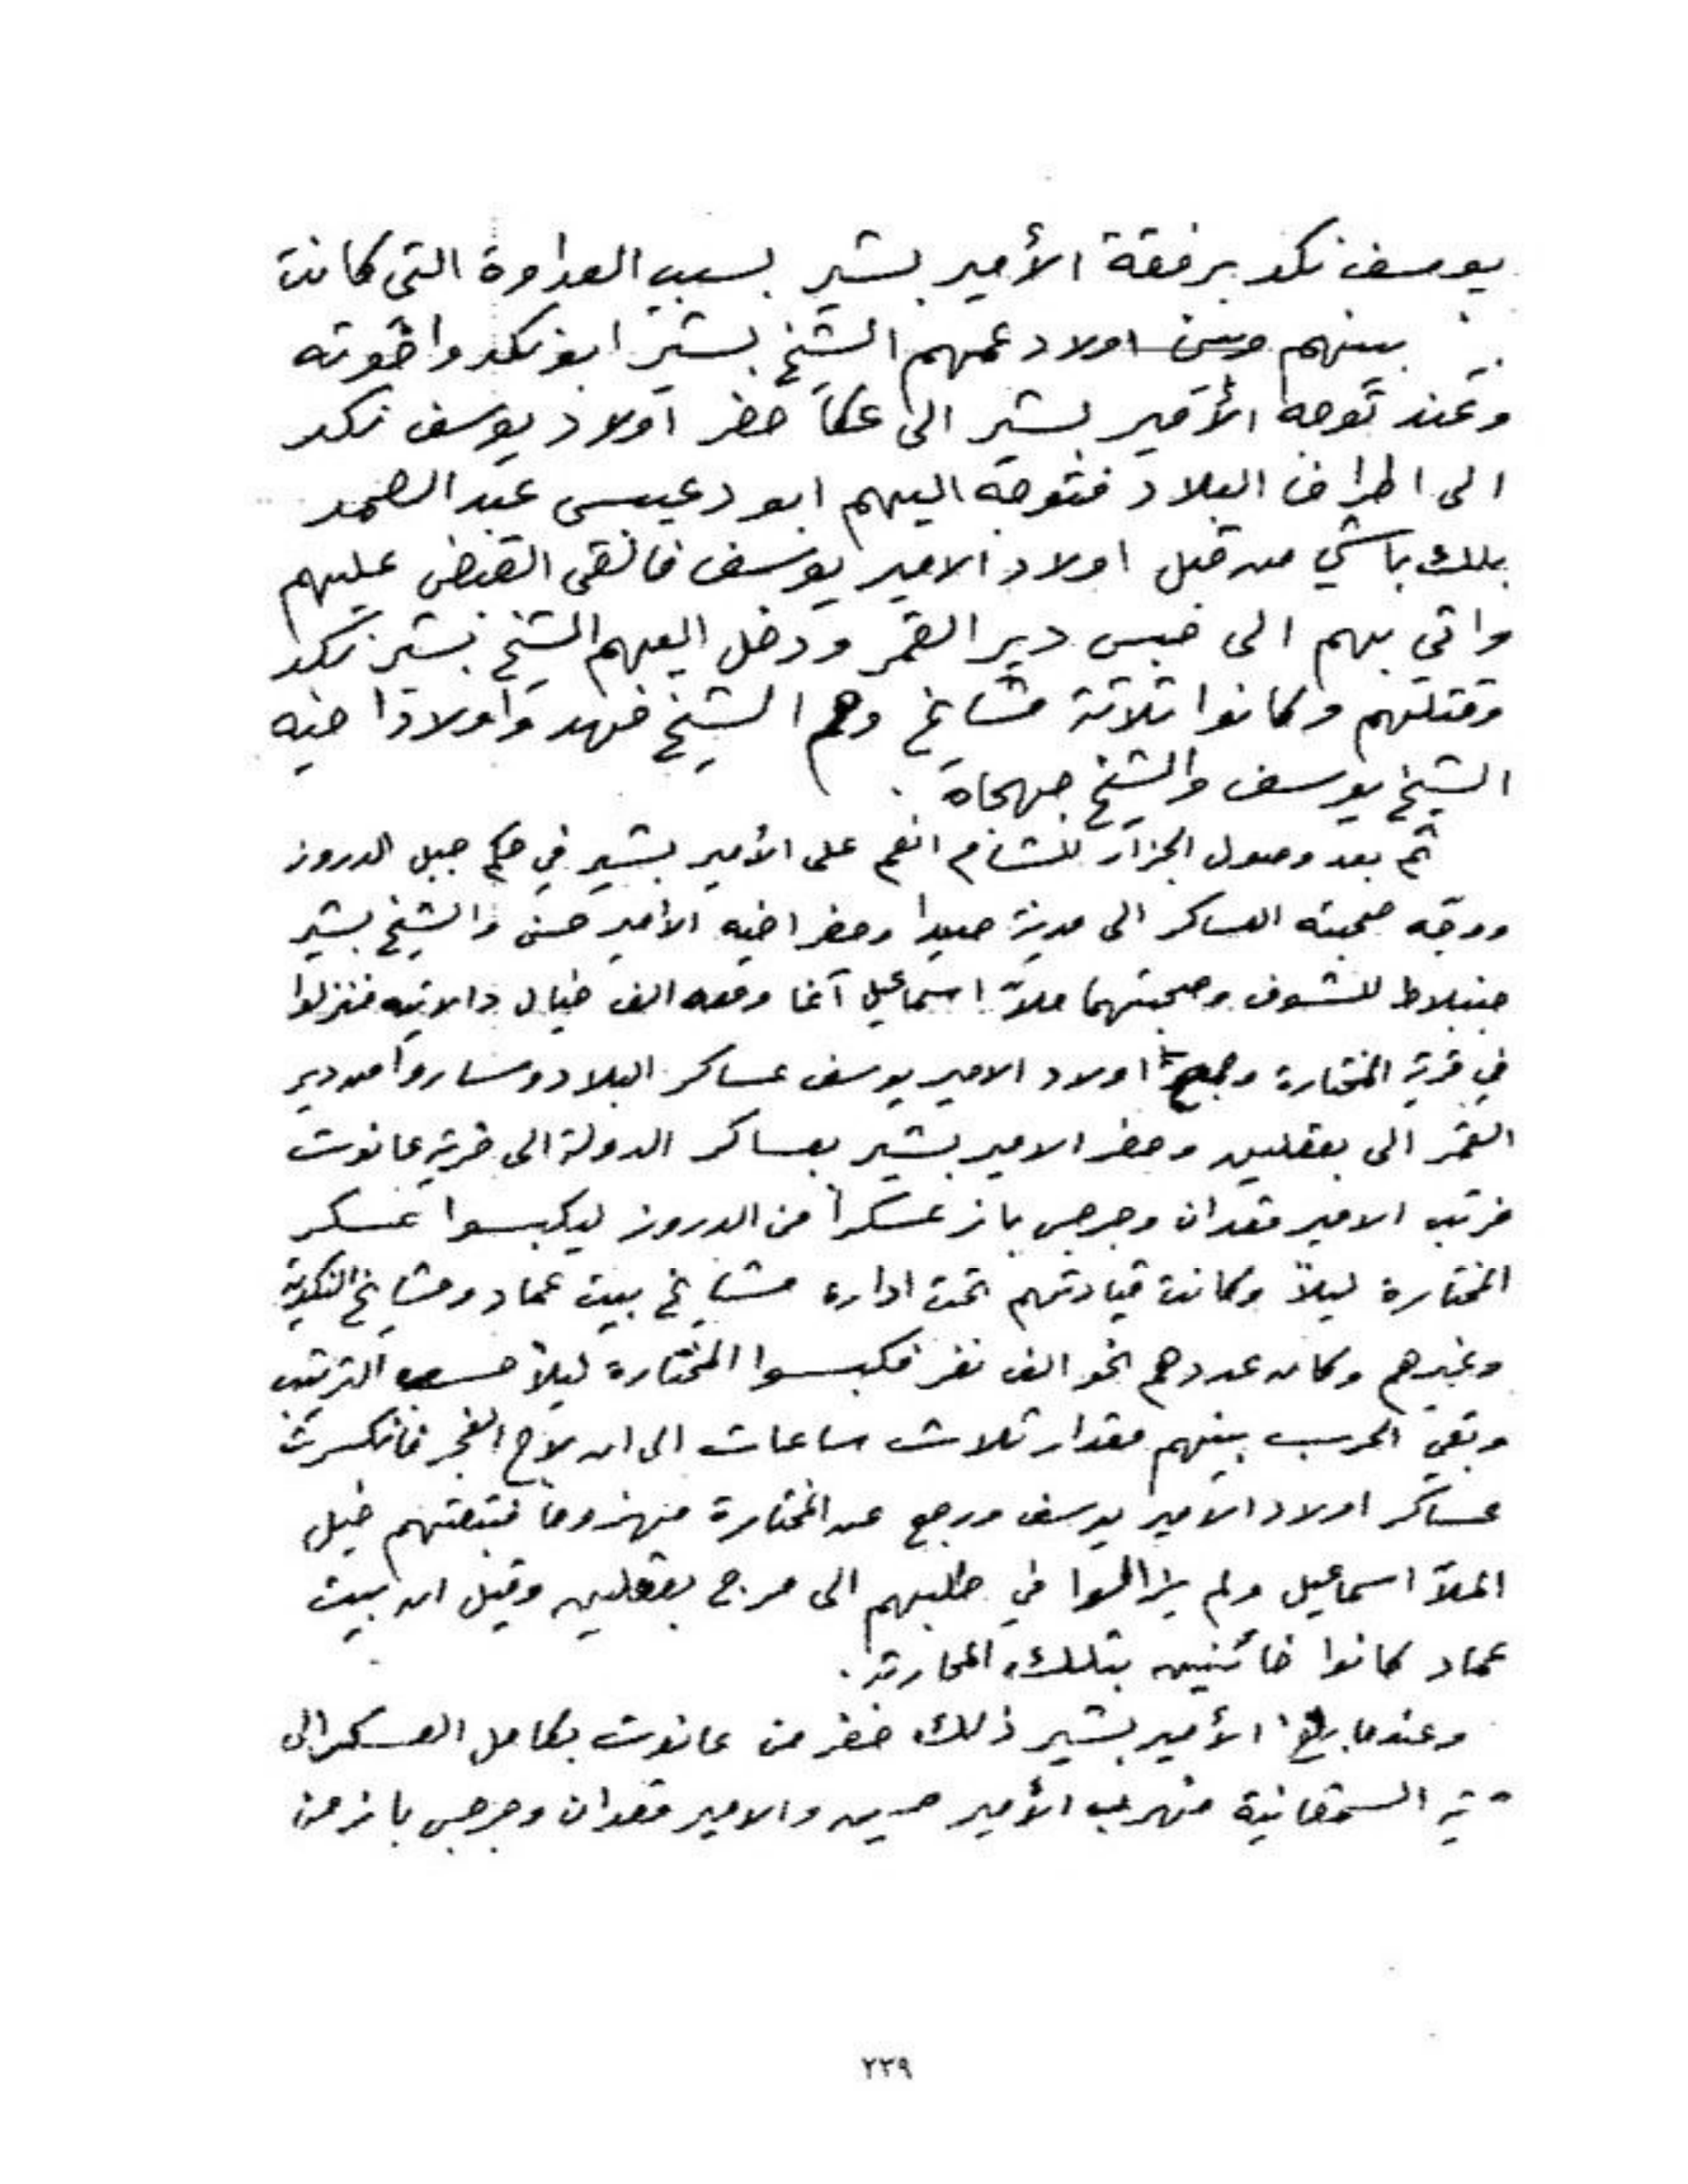 يوسف نكد برفقة الأمير بشير بسبب العداوة التي كانت
بينهم وبين اولاد عمهم الشيخ بشير ابو نكد واخوته
وعند توجه الأمير بشير الى عكا حضر اولاد يوسف نكد
الى اطراف البلاد فتوجه اليهم ابو دعيسى عبد الصمد
بلك باشي من قبل اولاد الامير يوسف فالقى القبض عليهم
واتي بهم الى حبس دير القمر ودخل اليهم الشيخ بشير نكد
وقتلهم وكانوا ثلاثة مشايخ وهم الشيخ فهد واولاد اخيه
الشيخ يوسف والشيخ جهجاه .
ثم بعد وصول الجزار للشام انعم على الأمير بشير في حكم جبل الدروز
ووجه صحبته العساكر الى مدينة صيدا وحضر اخيه الأمير حسن والشيخ بشير
جنبلاط للشوف وصحبتهما ملاّ اسماعيل آغا ومعه الف خيال دالاتيه فنزلوا
في قرية المختارة وجمع اولاد الامير يوسف عساكر البلاد وساروا من دير
القمر الى بعقلين وحضر الامير بشير بعساكر الدولة الى قرية عانوت
فرتب الامير قعدان وجرجس باز عسكراً من الدروز ليكبسوا عسكر
المختارة ليلاً وكانت قيادتهم تحت ادارة مشايخ بيت عماد ومشايخ النكدية
وغيرهم وكان عددهم نحو الف نفر فكبسوا المختارة ليلاً حسب الترتيب
وبقي الحرب بينهم مقدار ثلاث ساعات الى ان لاح الفجر فانكسرت
عساكر اولاد الامير يوسف ورجع عن المختارة مهزوماً فتبعتهم خيل
الملاّ اسماعيل ولم يزالوا في طلبهم الى مرج بعقلين وقيل ان بيت
عماد كانوا خائنين بتلك المحاربة .
وعندما بلغ الأمير بشير ذلك حضر من عانوت بكامل العسكر الى
ية السمقانية فهرب الأمير حسين والامير قعدان وجرجس باز من
٢٣٩